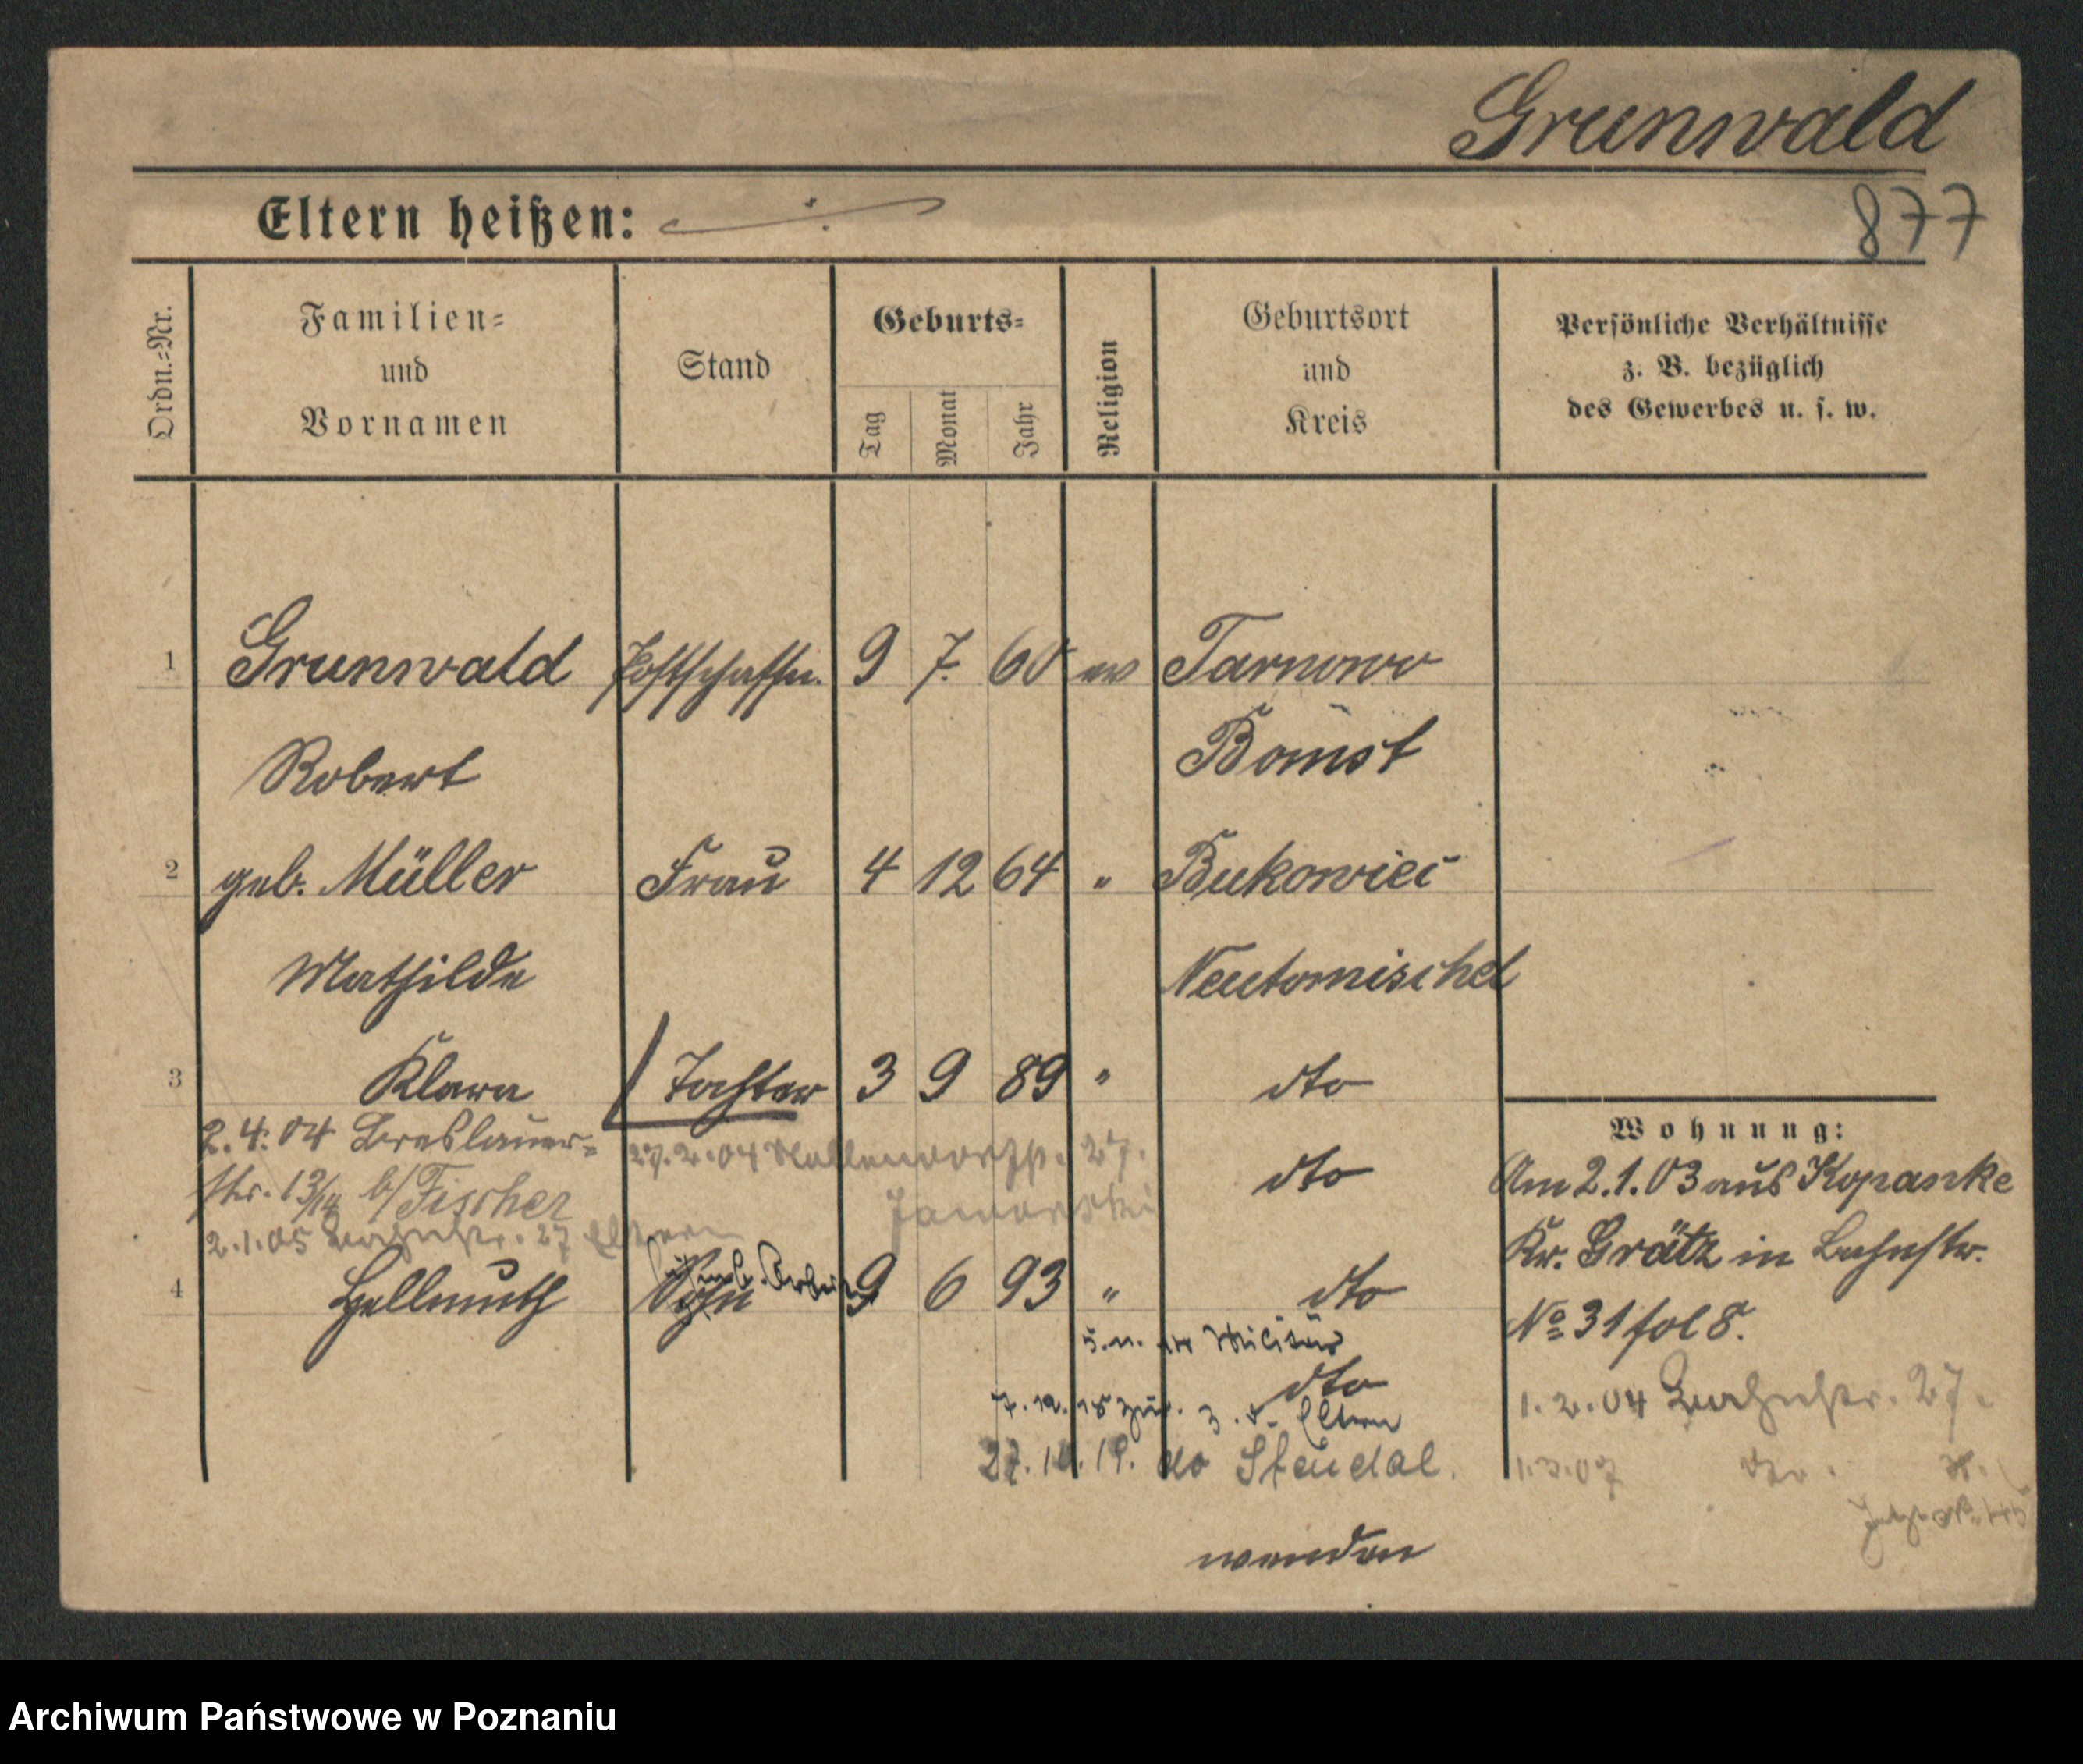 Grunwald
Eltern heißen:
877
Ordn.=Nr.
Familien=
und
Vornamen
Stand
Geburts=
Tag
Monat
Jahr
Religion
Geburtsort
und
Kreis
Persönliche Verhältnisse
z. B. bezüglich
des Gewerbes u. s. w.
1 Grunwald Postschaffn. 9 7. 60 ev Tarnowo
Robert Bomst
2 geb. Müller Frau 4 12 64 " Bukowiec
Mathilde Neutomischel
3 Klara Tochter 3 9 89 " dto
2.4.04 Breslauer=
27.2.04 27.
str. 13/14 b/Fischer
Jaworski
dto
2.1.05 Bahnstr. 27 Eltern
4 Hellmuth Sohn 9 6 93 " dto
Militär
dto
Eltern
27.10.19. do Stendal.
wenden
Wohnung:
Am 2.1.03 aus Kopanke
Kr. Grätz in Bahnstr.
No 31 fol 8.
1.2.04 Bahnstr. 27.
1.3.07
Archiwum Państwowe w Poznaniu